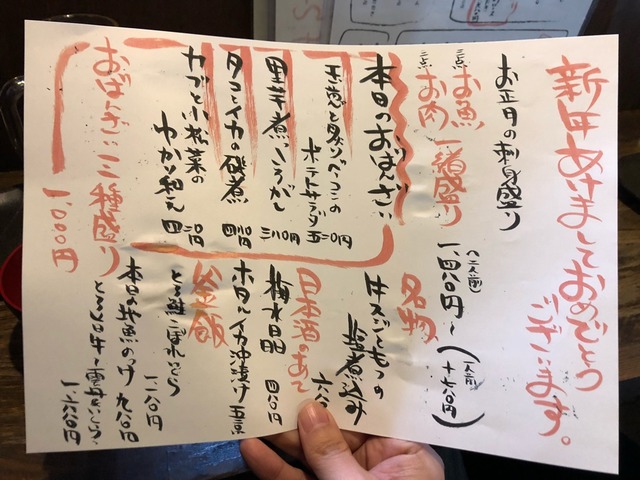 新年あけましておめでとう
ございます。
お正月の刺身盛り
三点 お魚
三点 お肉
一緒盛り
(二人前)
一、四八〇円〜
(一人前
+七四〇円)
本日のおばんざい
玉葱と炙りベーコンの
ポテトサラダ 五二〇円
里芋煮っころがし 三八〇円
タコとイカの磯煮 四八〇円
カブと小松菜の
わかり和え 四二〇円
おばんざい三種盛り
一、〇〇〇円
名物
牛スジともつの
塩煮込み
六八
日本酒のあて
梅水晶 四八〇円
ホタルイカ沖漬け 五八〇
釜飯
とろ鮭こぼれいくら
一、二八〇円
本日の地魚のづけ 九八〇円
とろろ日牛雲丹いくら
一、六八〇円